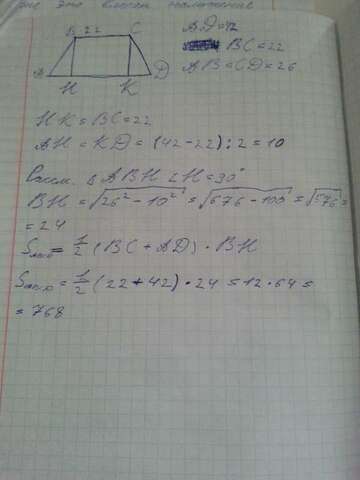 при
B 22 C
A H K D
AD=42
BC=22
AB=CD=26
HK=BC=22
AH=KD=(42-22):2=10
Рассм. △ABH ∠H=90°
BH=√26²-10²=√676-100=√576=
=24
=½(BC+AD)·BH
=½(22+42)·24=12·64=
=768